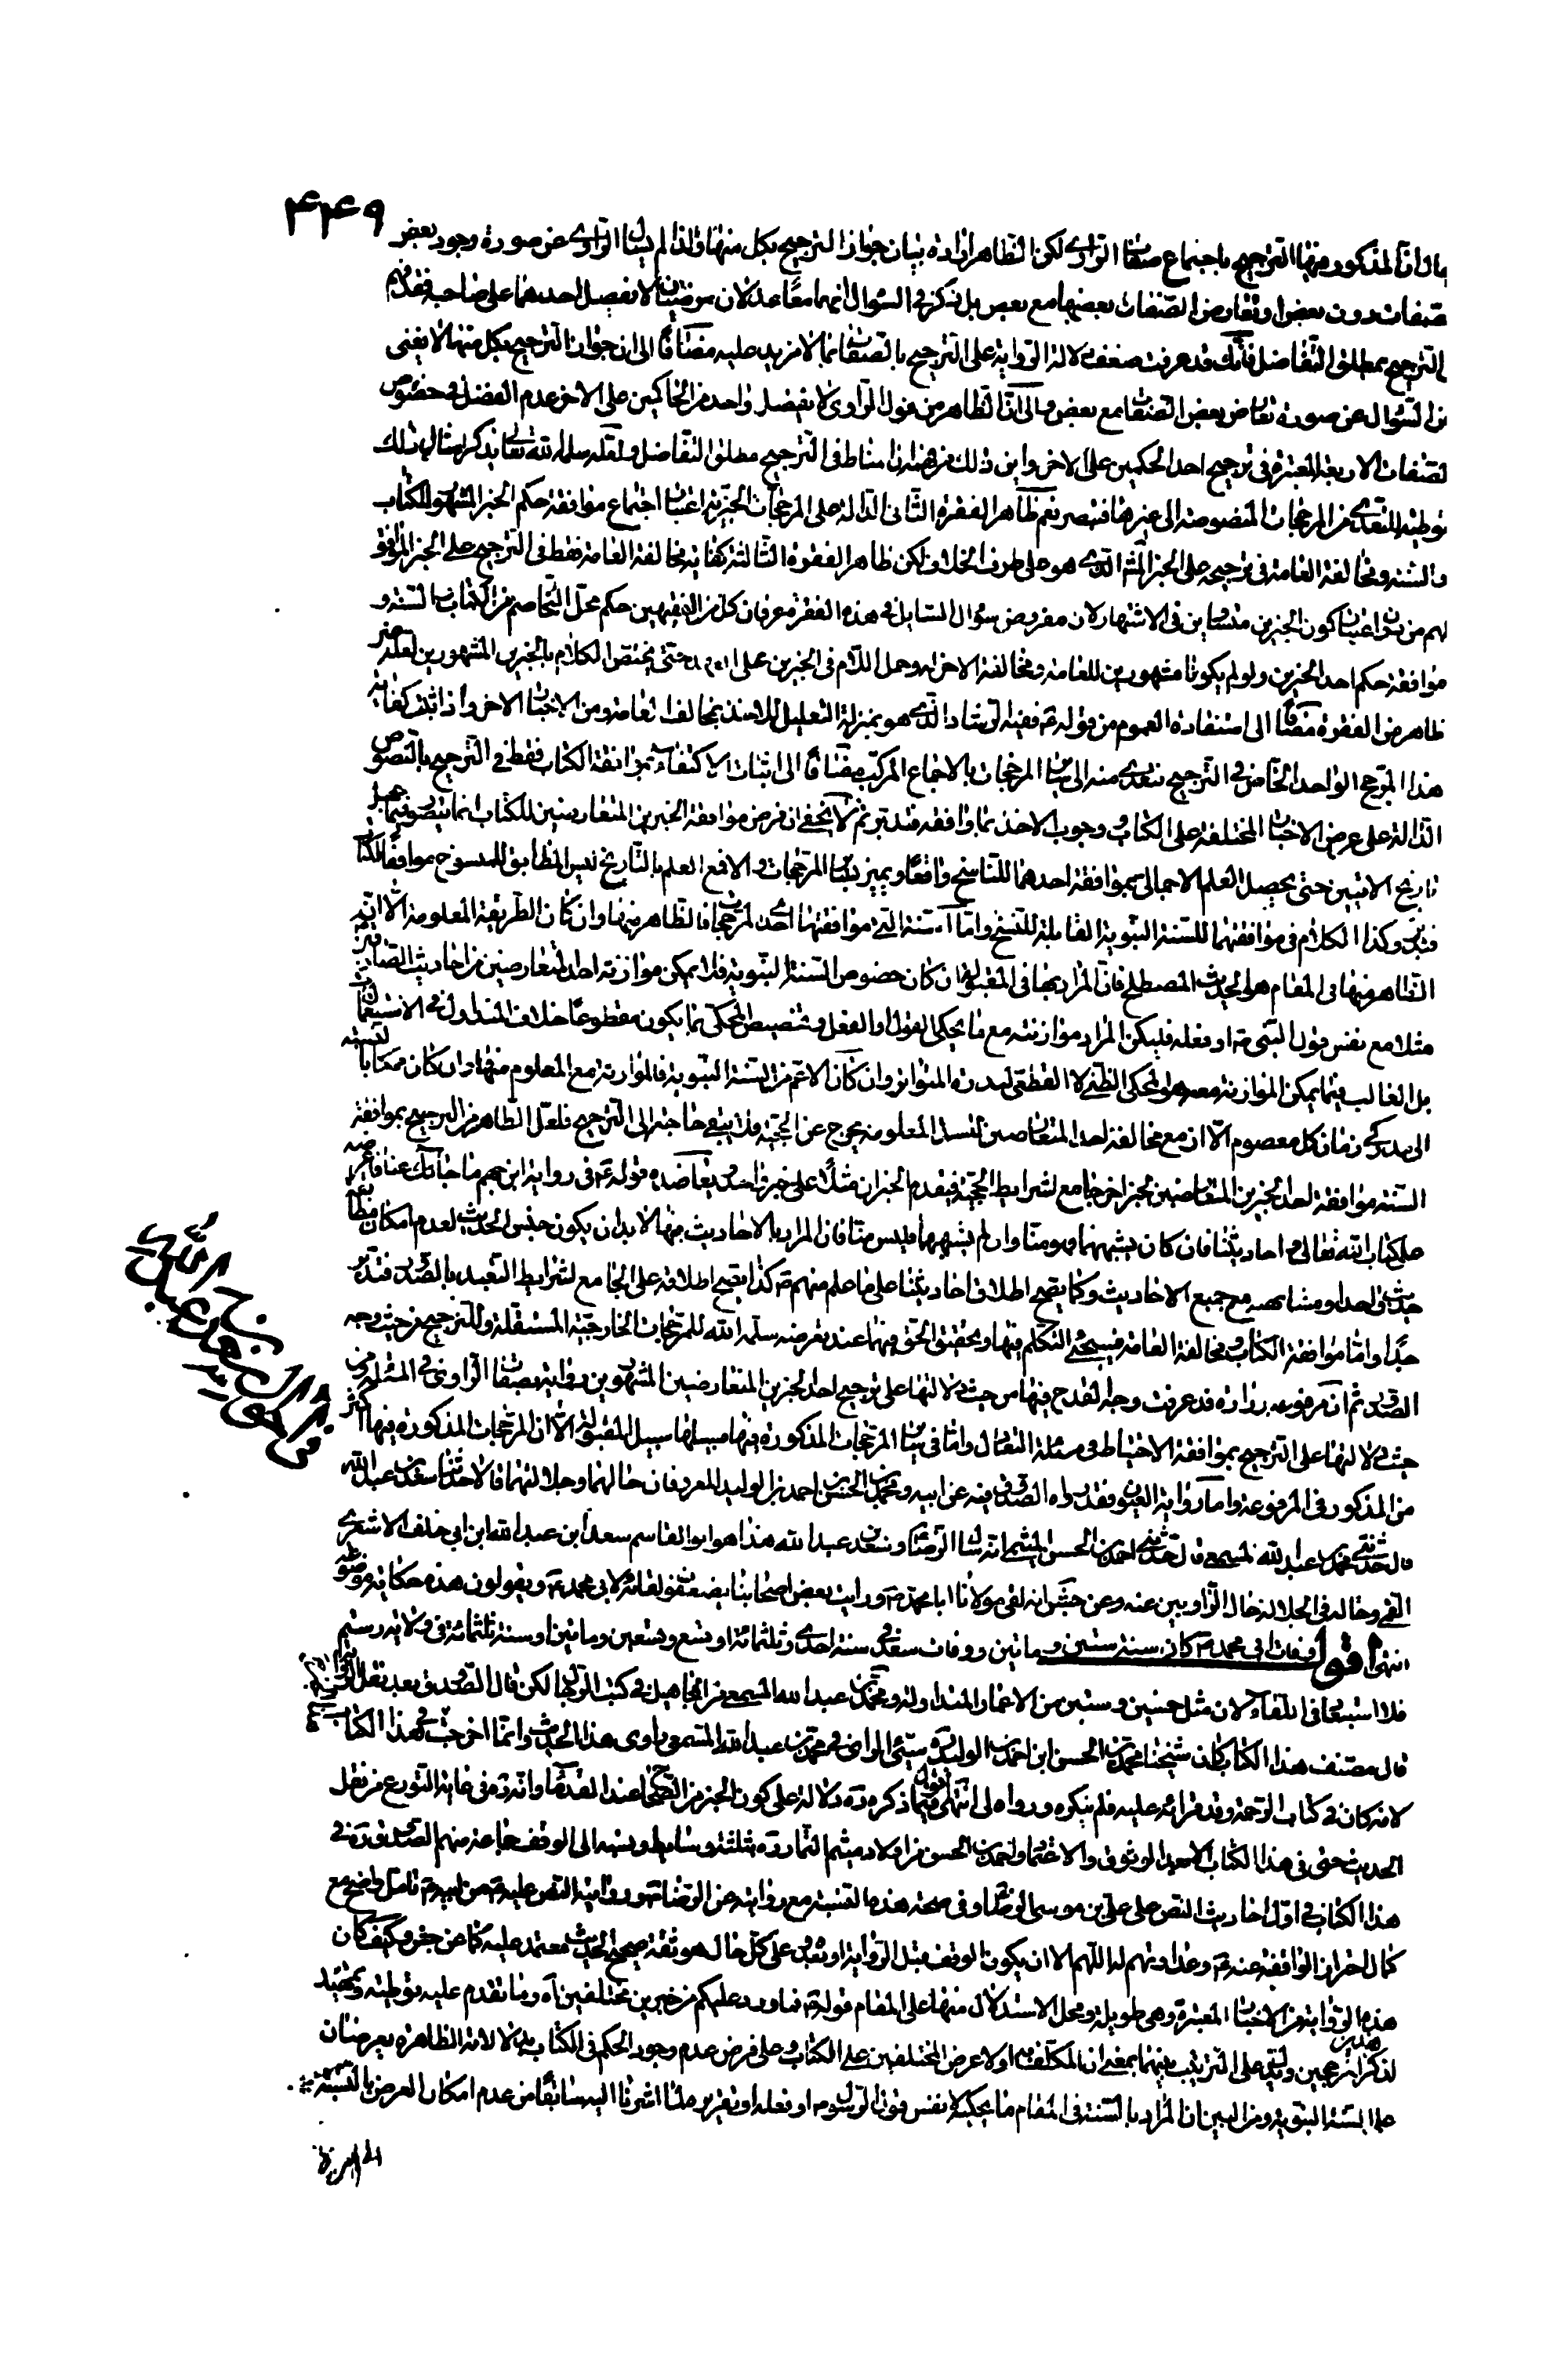 ۴۴۹
المذكور فيها الترجيح باجتماع صفات الراوى لكن الظاهر ارادة بيان جواز الترجيح بكل منها ولذا لم يسئل الراوى عن صورة وجود بعض
صفات دون بعض او تعارض الصفات بعضها مع بعض بل ذكر فى السؤال انهما معًا عدلان مرضيان لا يفضل احدهما على صاحبه فقد فهم
الترجيح بمطلق التفاضل فانك قد عرفت ضعف دلالة الرواية على الترجيح بالصفات بما لا مزيد عليه مضافًا الى ان جواز الترجيح بكل منها لا يغنى
السؤال عن صورة تعارض بعض الصفات مع بعض والى انّ الظاهر من قول الراوى لا يفضل واحد من الحاكمين على الاخر عدم الفضل فى خصوص
الصفات الاربعة المعتبرة فى ترجيح احد الحكمين على الاخر واين ذلك من فهم ان المناط فى الترجيح مطلق التفاضل ولعله سلمه الله تعالى يذكر امثال ذلك
توطئة للتعدى من المرجحات المنصوصة الى غيرها فتبصر نعم ظاهر الفقرة الثانى الدالة على المرجحات الخبرية اعتبار اجتماع موافقة حكم الخبر المشهور للكتاب
والسنة ومخالفة العامة فى ترجيحه على الخبر الذى هو على طرف الخلاف لكن ظاهر الفقرة الثالثة كفاية مخالفة العامة فقط فى الترجيح على الخبر الموافق
لهم من دون اعتبار كون الخبرين متساويين فى الاشتهار لان مفروض سؤال السايل فى هذه الفقرة عرفان كل من الفقيهين حكم محل التخاصم من الكتاب والسنة و
موافقة حكم احد الخبرين ولو لم يكونا مشهورين للعامة ومخالفة الاخر له وحمل اللام فى الخبرين على حتى يختص الكلام بالخبرين المشهورين لعله
ظاهر من الفقرة مضافا الى استفادة العموم من قوله ع ففيه الرشاد الذى هو بمنزلة التعليل للاخذ بمخالف العامة ومن الاخبار الاخر واذا ثبت كفاية
هذا المرجح الواحد الخاص فى الترجيح نتعدى منه الى ساير المرجحات بالاجماع المركب مضافًا الى اثبات الاكتفاء بموافقة الكتاب فقط فى الترجيح بالنصوص
الدالة على عرض الاخبار المختلفة على الكتاب وجوب الاخذ بما وافقه فتدبر ثم لا يخفى ان فرض موافقة الخبرين المتعارضين للكتاب انما يتصور فيما جهل
تاريخ الايتين حتى يحصل العلم الاجمالى بموافقة احدهما للناسخ واقعًا ويميز بساير المرجحات والا فمع العلم بالتاريخ ليس المطابق للمنسوخ موافقًا للكتاب
فتدبر وكذا الكلام فى موافقتهما للسنة النبوية القابلة للنسخ واما السنة التى موافقتها احدى المرجحات فالظاهر منها وان كان الطريقة المعلومة الا ان
الظاهر منها فى المقام هو الحديث المصطلح فان المراد بها فى المقبولة ان كان خصوص السنة النبوية فلا يمكن موازنة احد المتعارضين من احاديث الصادقين
مثلا مع نفس قول النبى ص او فعله فليكن المراد موازنته مع ما يحكى القول او الفعل وتخصيص المحكى بما يكون مقطوعًا خلاف المتداول فى الاستعمال
بل الغالب فيما يمكن الموازنة معه هو المحكى الظنى لا القطعى لندرة المتواتر وان كان الاعم من السنة النبوية فالموازنة مع المعلوم منها وان كان ممكنا بالنسبة
الى مدركى زمان كل معصوم الا ان مع مخالفة احد المتعارضين للسنة المعلومة يخرج عن الحجية فلا يبقى حاجة الى الترجيح فلعل الظاهر من الترجيح بموافقة
السنة موافقة احد الخبرين المتعارضين بخبر اخر جامع لشرايط الحجية فيقدم الخبران مثلًا على خبر واحد ويعاضده قوله ع فى رواية ابن جهم ما جائك عنا فاعرضه
على كتاب الله تعالى واحاديثنا فان كان يشبههما فهو منا وان لم يشبهها فليس منا فان المراد بالاحاديث فيها لا بد ان يكون جنس الحديث لعدم امكان مطابقة
حديث واحد او مشابهته مع جميع الاحاديث وكما يصح اطلاق احاديثنا على ما علم منهم ع كذا يصح اطلاقه على الجامع لشرايط التعبد بالصدور فتدبر
جدًا واما موافقة الكتاب ومخالفة العامة فسيجئ التكلم فيها وتحقيق الحق فيهما عند تعرضه سلمه الله للمرجحات الخارجية المستقلة وللترجيح من حيث وجه
الصدور ثم ان مرفوعة زرارة قد عرفت وجه القدح فيها من حيث دلالتها على ترجيح احد الخبرين المتعارضين المشهورين رواية بصفات الراوى فى المسئلة ومن
حيث دلالتها على الترجيح بموافقة الاحتياط فى مسئلة التعادل واما فى بيان المرجحات المذكورة فيها فسبيلها سبيل المقبولة الا ان المرجحات المذكورة فيها اكثر
من المذكور فى المرفوعة واما رواية العيون فقد رواه الصدوق فيه عن ابيه ومحمد بن الحسن بن احمد بن الوليد المعروفان حالهما وجلالتهما قالا حدثنا سعد بن عبد الله
قال حدثنى محمد بن عبد الله المسمعى قال حدثنى احمد بن الحسن الميثمى انه سئل الرضا ع وسعد بن عبد الله هذا هو ابو القاسم سعد ابن عبد الله ابن ابى خلف الاشعرى
القمى وحاله فى الجلالة حال الراويين عنه وعن جش انه لقى مولانا ابا محمد ع ورايت بعض اصحابنا يضعفون لقائه لابى محمد ع ويقولون هذه حكاية موضوعة
انتهى اقول وفات ابى محمد ع كان سنة ستين و ماتين ووفات سعد فى سنة احدى وثلثمائة او تسع وتسعين وماتين او سنة ثلثمائة فى ولاية رستم
فلا استبعاد فى اللقاء لان مثل خمسين و ستين من الاعمار المتداولة ومحمد بن عبد الله المسمعى من المجاهيل فى كتب الرجال لكن قال الصدوق بعد نقل
قال مصنف هذا الكتاب كان شيخنا محمد بن الحسن ابن احمد بن الوليد ره سيئ الراى فى محمد بن عبد الله المسمعى راوى هذا الحديث وانما اخرجت فى هذا الكتاب
لانه كان فى كتاب الرحمة وقد قرائه عليه فلم ينكره ورواه لى انتهى اقول فيما ذكره ره دلالة على كون الخبر من الصحاح عند القدماء وانه ره فى غاية التورع من نقل
الحديث حتى فى هذا الكتاب الا بعد الوثوق والاعتماد واحمد بن الحسن من اولاد ميثم التمار ره بثلثة وسايط ونسبه الى الوقف جماعة منهم الصدوق ره فى
هذا الكتاب فى اول احاديث النص على على بن موسى الرضا وفى صحة هذه النسبة مع روايته عن الرضا ع ورواية النص عليه ع من ابيه ع تامل واضح مع
كمال احتراز الواقفة عنه ع وعداوتهم له اللهم الا ان يكون الوقف قبل الرواية او بعدها وعلى كل حال هو ثقة صحيح الحديث معتمد عليه كما عن جش وكيف كان
هذه الرواية من الاخبار المعتبرة وهى طويلة ومحل الاستدلال منها على المقام قوله ع فما ورد عليكم من خبرين مختلفين اه وما تقدم عليه توطئة وتمهيد
لذكر هذين المرجحين ويدل على الترتيب بينهما بمعنى ان المكلف به اولا عرض المختلفين على الكتاب وعلى فرض عدم وجود الحكم فى الكتاب بدلالاته الظاهرة يعرضان
على السنة النبوية ومن البين ان المراد بالسنة فى المقام ما يحكيه لا نفس قول الرسول ص او فعله او تقريره لما اشرنا اليه سابقًا من عدم امكان العرض بالنسبة